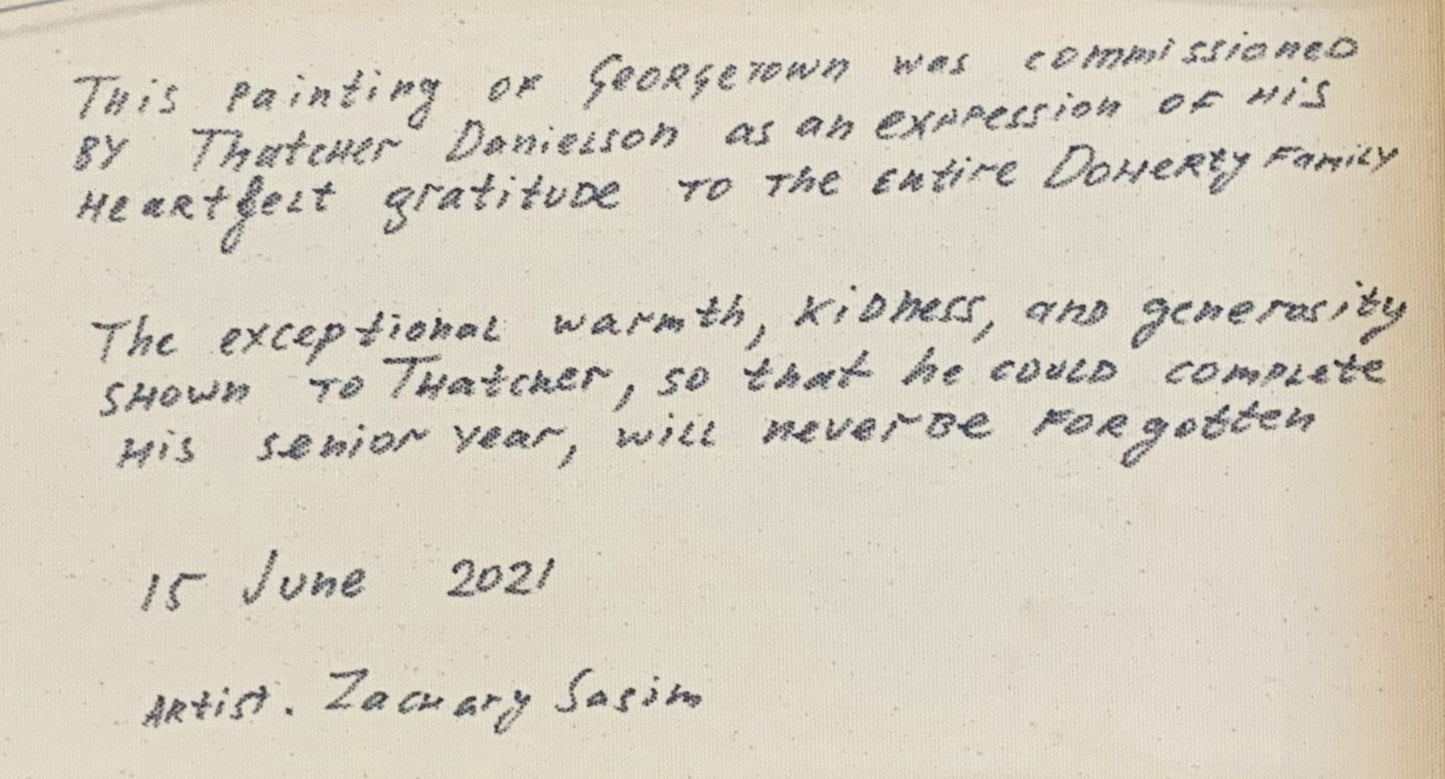 This painting of Georgetown was commissioned
by Thatcher Danielson as an expression of his
heartfelt gratitude to the entire Doherty Family
The exceptional warmth, kidness, and generosity
shown to Thatcher, so that he could complete
his senior year, will never be forgotten
15 June 2021
Artist. Zachary Sasim